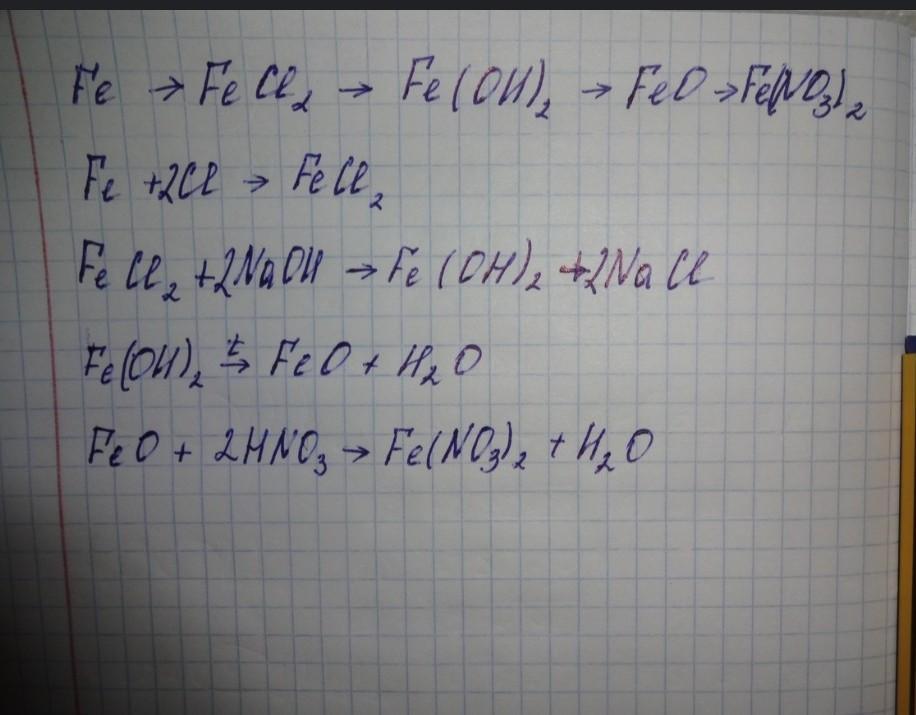 Fe → FeCl₂ → Fe(OH)₂ → FeO → Fe(NO₃)₂
Fe + 2Cl → FeCl₂
FeCl₂ + 2NaOH → Fe(OH)₂ + 2NaCl
Fe(OH)₂ t→ FeO + H₂O
FeO + 2HNO₃ → Fe(NO₃)₂ + H₂O